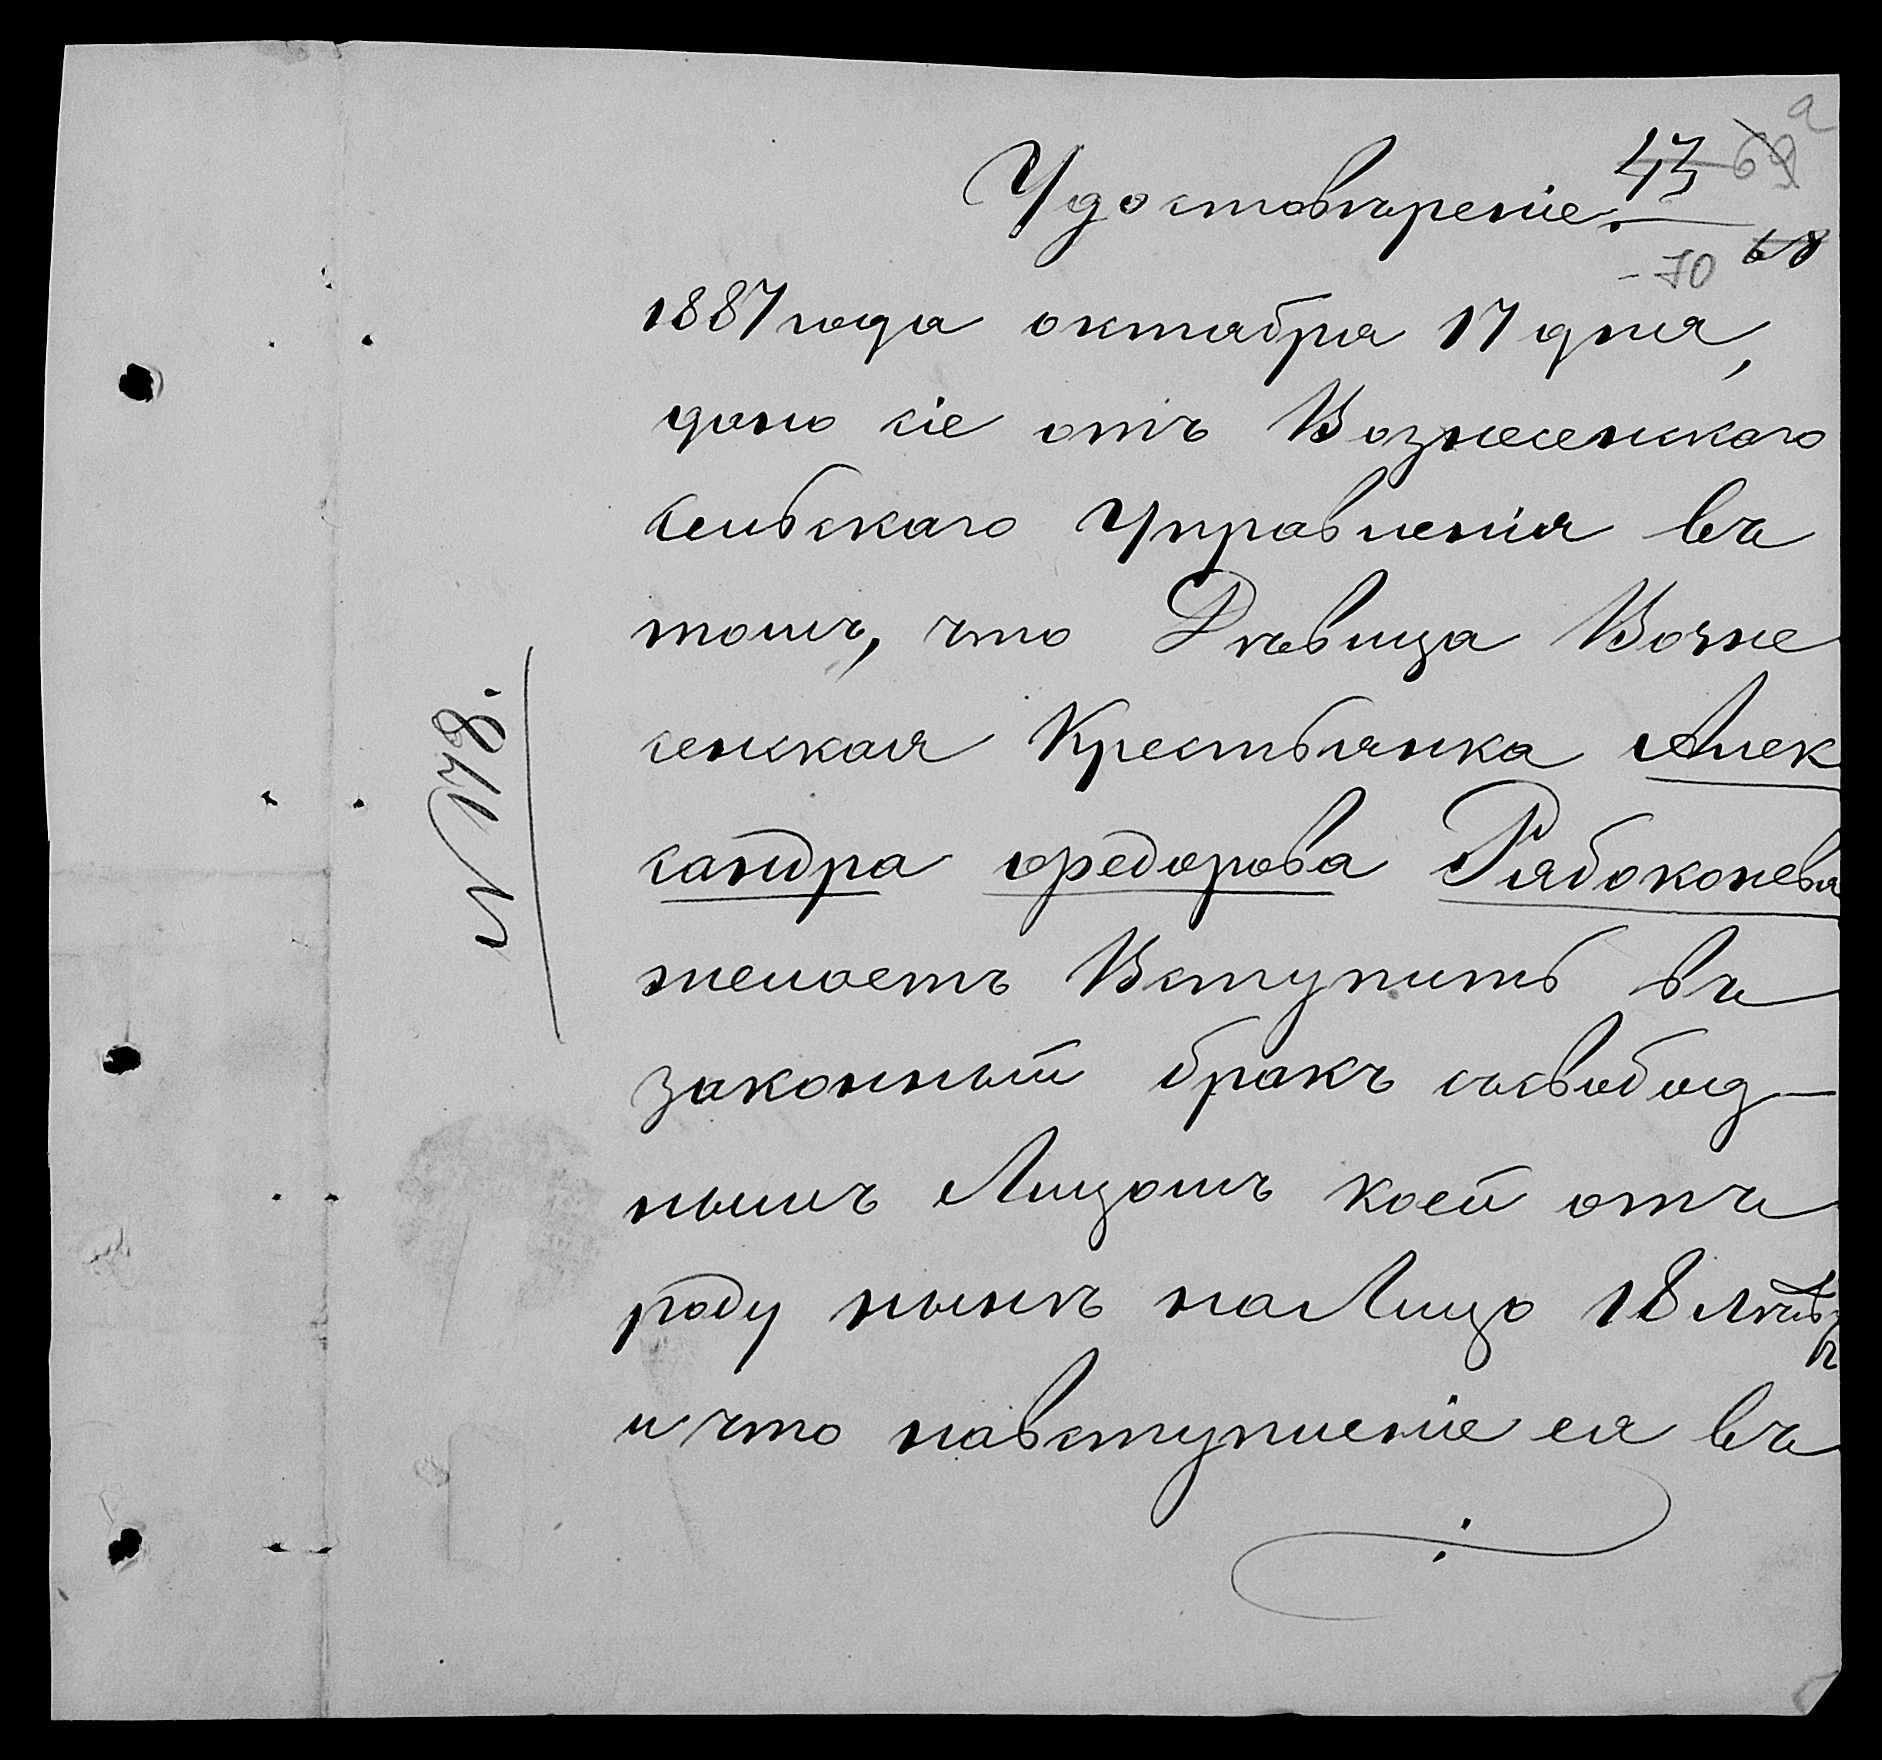 a
43 69
Удостовѣреніе.
68
- 70
1887 года октября 17 дня,
дано сіе отъ Вознесенскаго
сельскаго Управленія въ
томъ, что Дѣвица Возне
сенская Крестьянка Алек
сандра Федорова Рябоконева
желаетъ Вступить въ
законный бракъ съсвобод—
нымъ Лицомъ коей отъ
роду нынѣ наЛицо 18 лѣтъ
и что навступленіе ея въ
N 178.